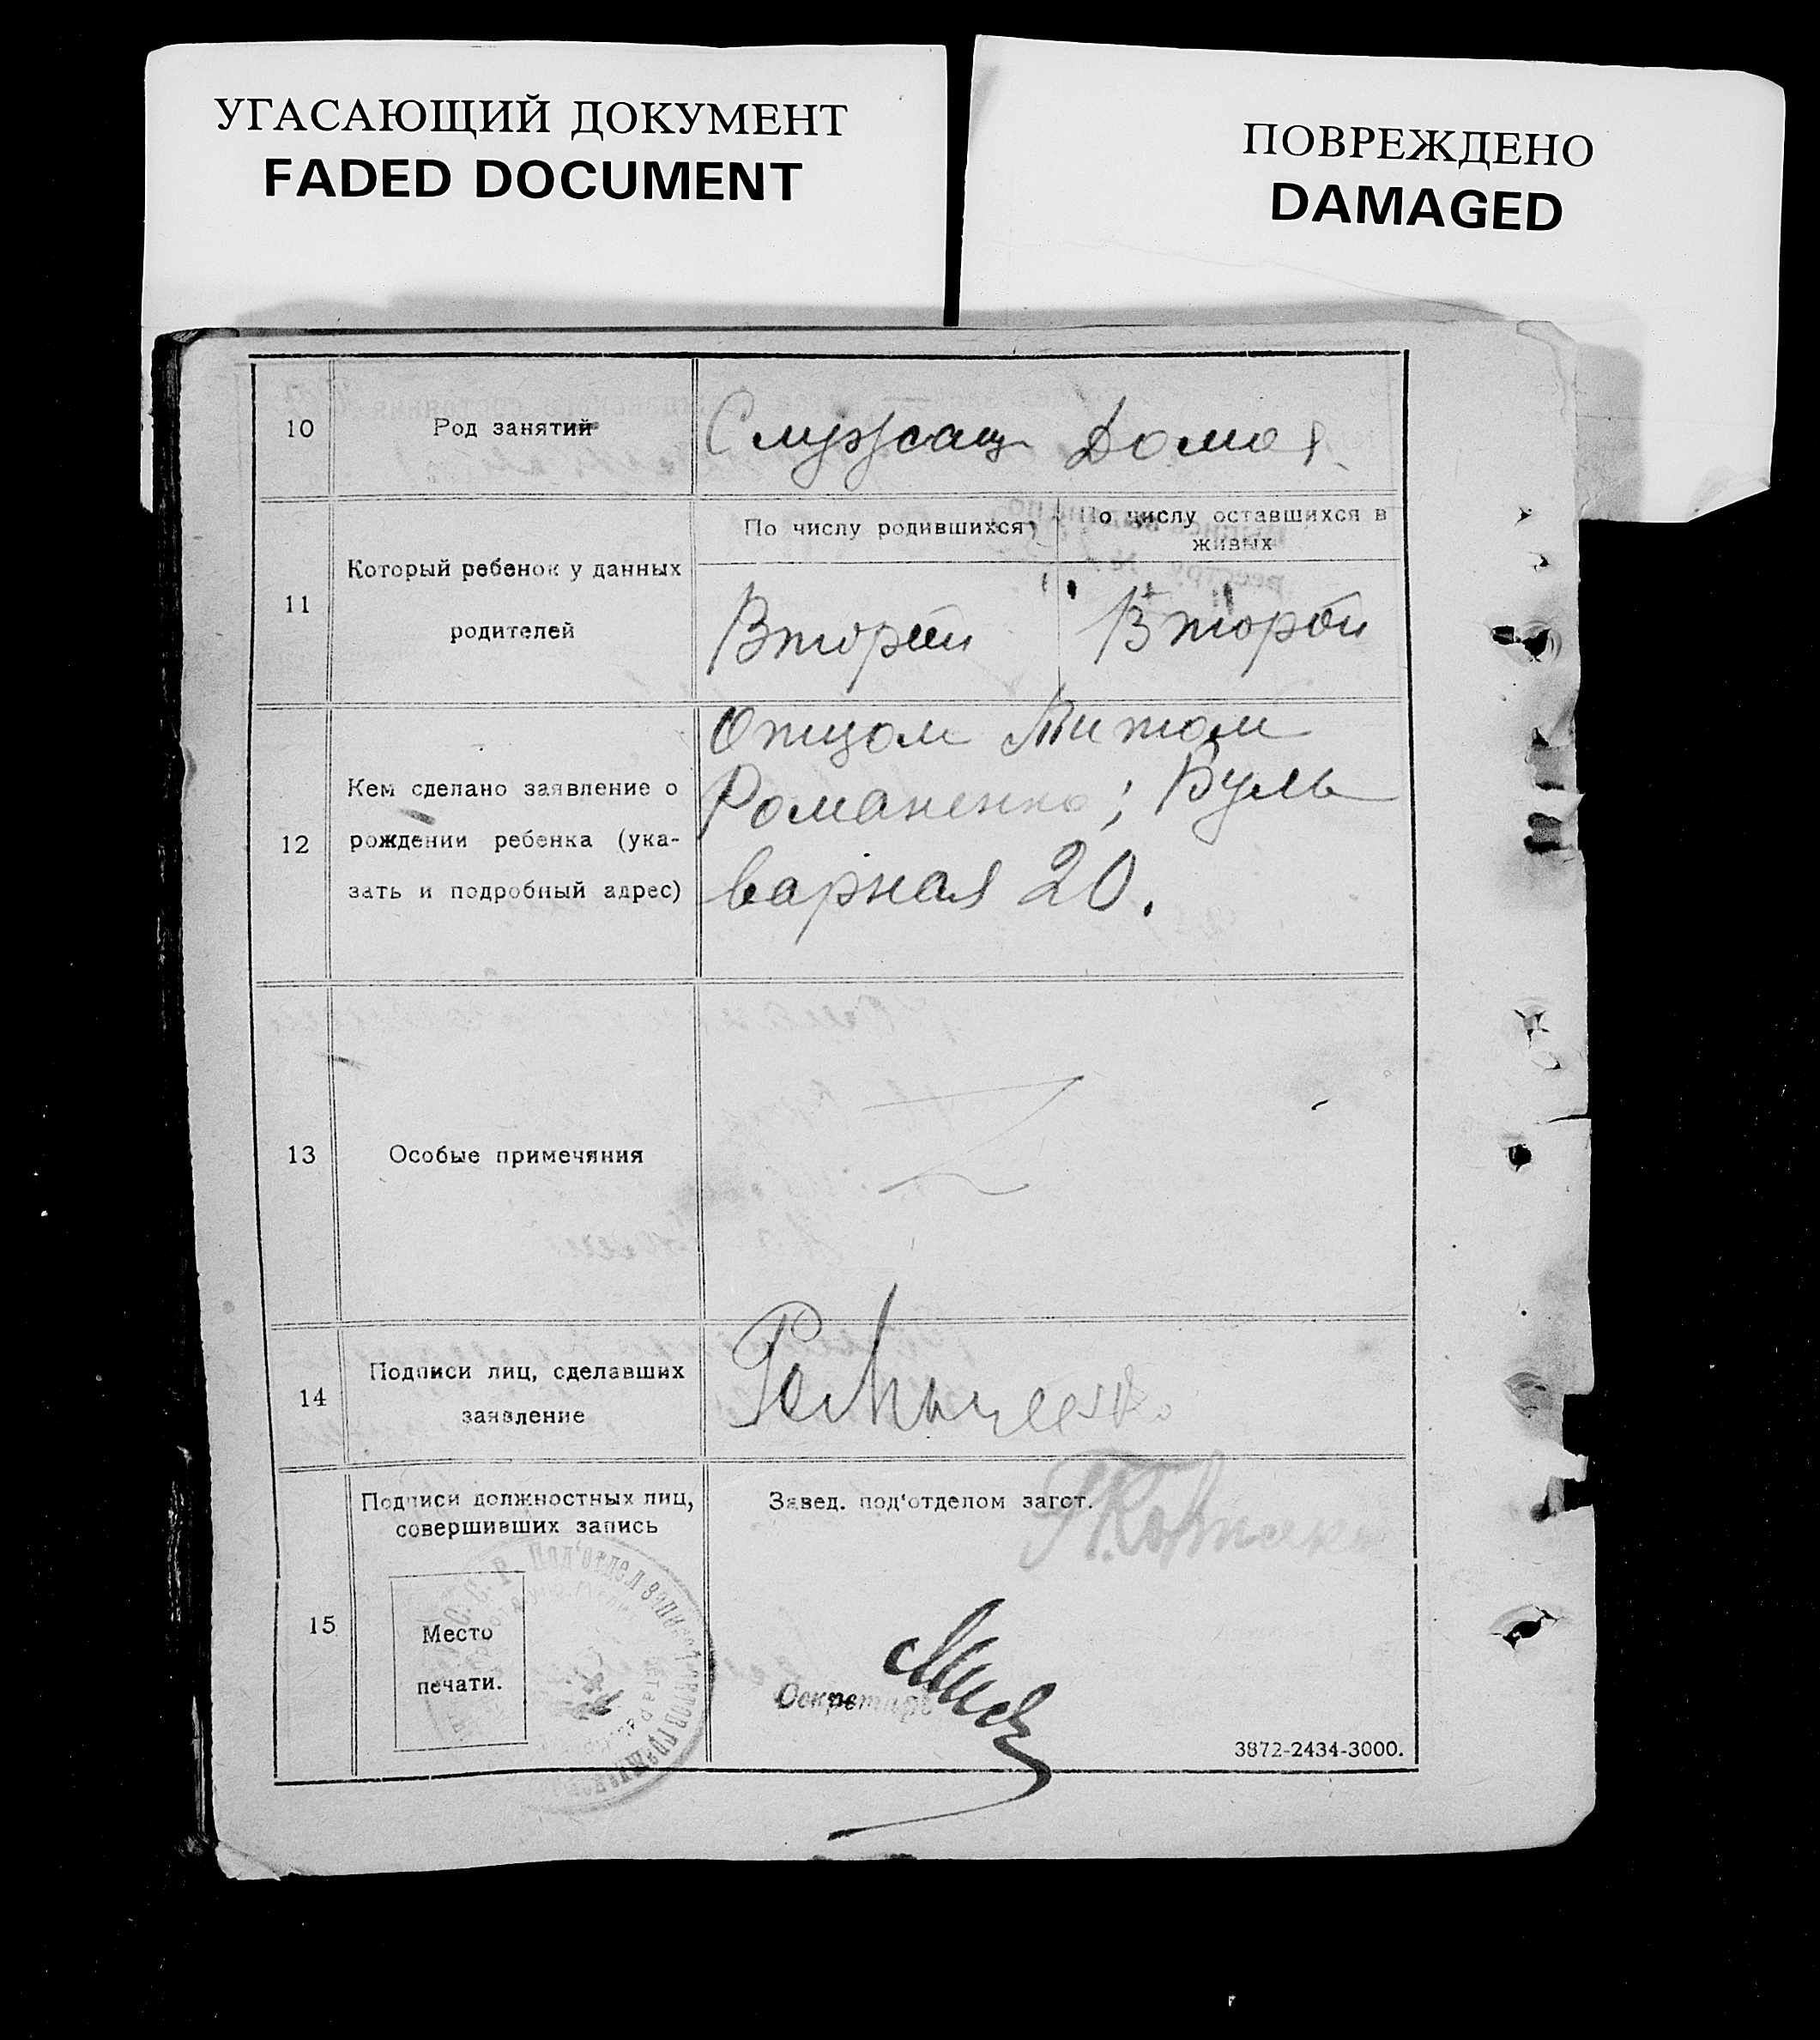 УГАСАЮЩИЙ ДОКУМЕНТ
FADED DOCUMENT
ПОВРЕЖДЕНО
DAMAGED
10 Род занятий Служащ Домох.
11 Который ребенок у данных родителей
По числу родившихся По числу оставшихся в живых
Второй Второй
12 Кем сделано заявление о
рождении ребенка (ука-
зать и подробный адрес)
Отцом Титом
Романенко; Буль
варная 20.
13 Особые примечания
14 Подписи лиц, сделавших
заявление
Романенко
15 Подписи должностных лиц,
совершивших запись
Место
печати.
Завед. под'отделом загст.
Секретарь
3872-2434-3000.